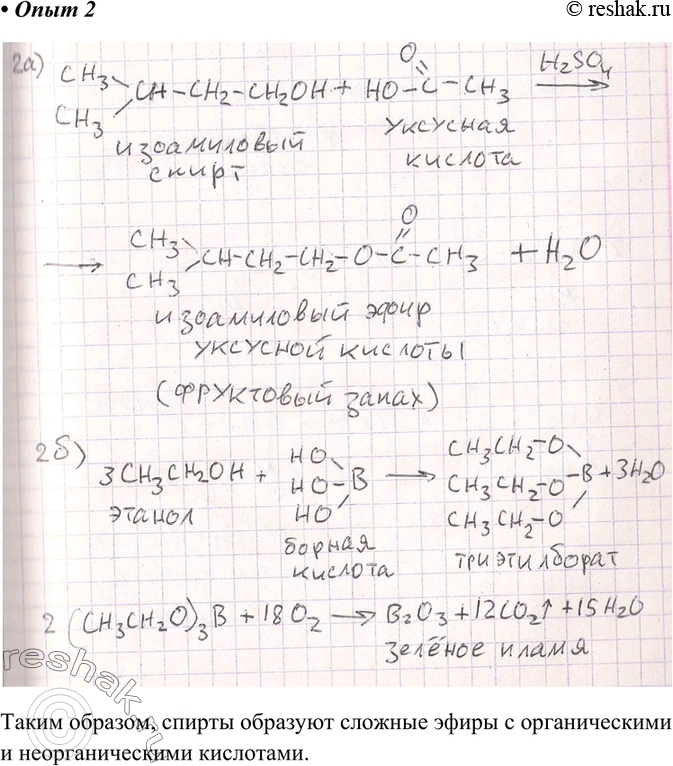 • Опыт 2
© reshak.ru
2а) CH₃ CH₃ >CH–CH₂–CH₂OH + HO–C(=O)–CH₃ H₂SO₄ →
изоамиловый спирт
уксусная кислота
→ CH₃ CH₃ >CH–CH₂–CH₂–O–C(=O)–CH₃ + H₂O
изоамиловый эфир
уксусной кислоты
(фруктовый запах)
2б) 3CH₃CH₂OH + HO HO HO >B → CH₃CH₂–O CH₃CH₂–O CH₃CH₂–O >B + 3H₂O
этанол
борная кислота
триэтилборат
2(CH₃CH₂O)₃B + 18O₂ → B₂O₃ + 12CO₂↑ + 15H₂O
зелёное пламя
reshak.ru
Таким образом, спирты образуют сложные эфиры с органическими
и неорганическими кислотами.